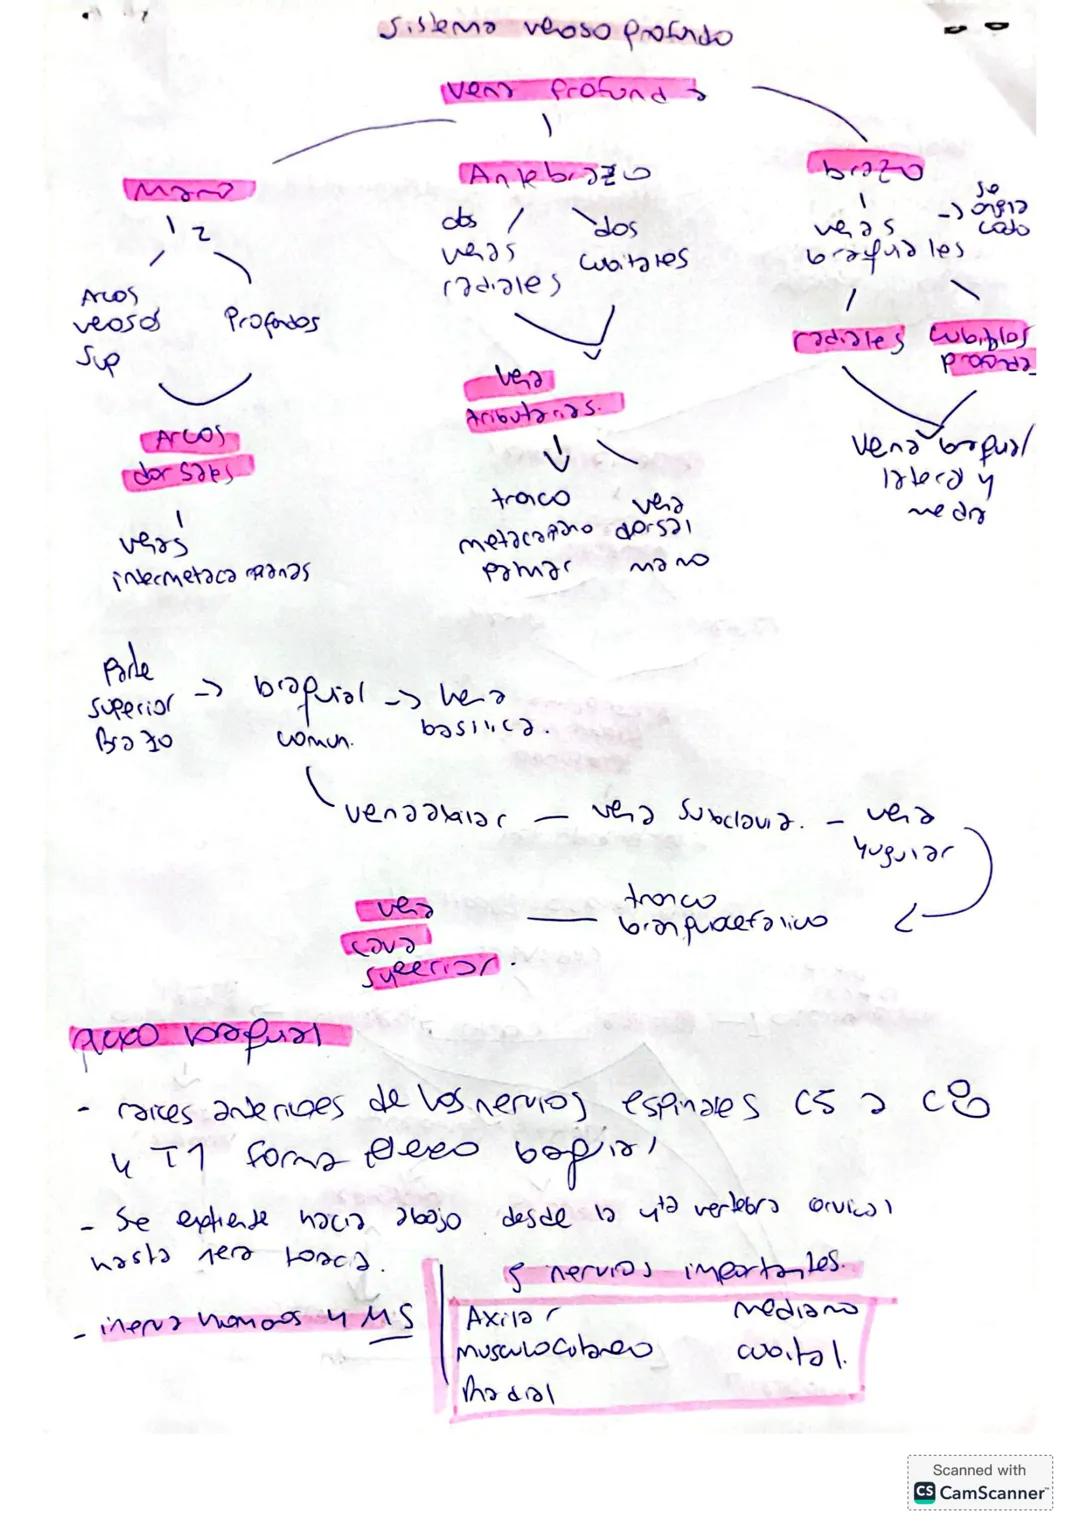 Sistema venoso profundo
Vena profunda
Mano
2
Arcos
venosos
sup
Profundos
Arcos
dorsales
venas
intermetacarpianas
Antebrazo
dos
venas
radiales
dos
cubitales
vena
tributarias.
tronco
metacarpiano
palmar
vena
dorsal
mano
brazo
venas
braquiales
->
se
origina
codo
radiales
cubitales
profunda
vena braquial
lateral y
media
Parte
superior
Brazo
->
braquial
comun.
->
vena
basilica.
vena axilar – vena subclavia. – vena
yugular
tronco
branquiocefalico
vena
cava
superior.
plexo braquial
- raices anteriores de los nervios espinales C5 a C8
y T1 forma plexo braquial
- Se extiende hacia abajo desde la 4ta vertebra cervical
hasta 1era toracica.
- inerva hombros y MS
5 nervios importantes.
Axilar
mediano
musculocutaneo
cubital.
Radial
Scanned with
CS CamScanner